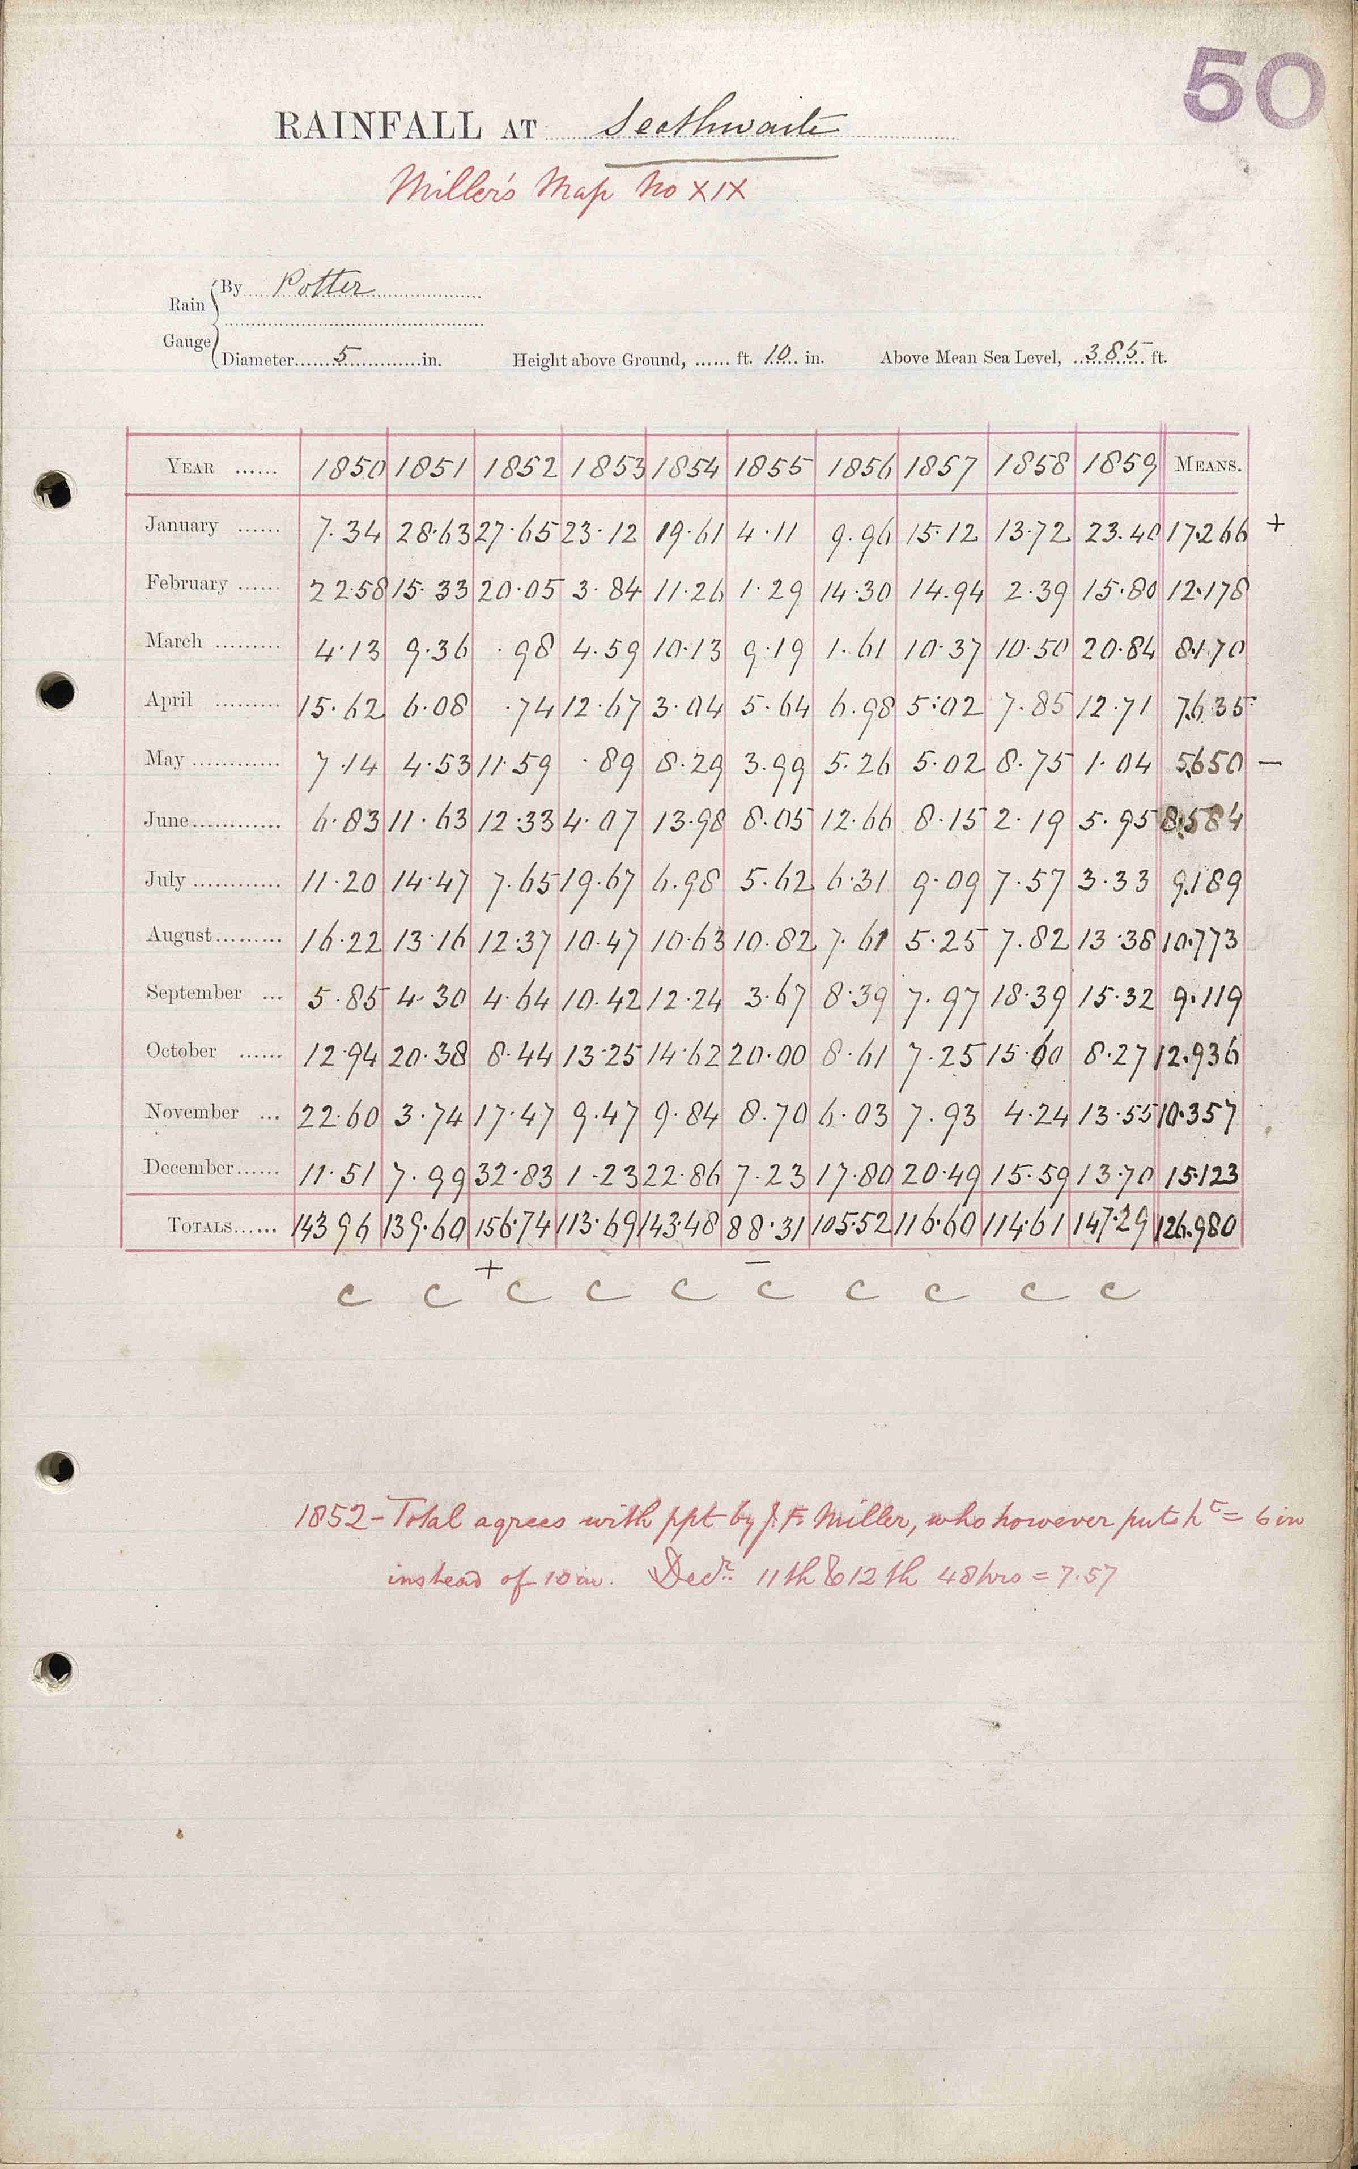 50
RAINFALL AT Seathwaite
Miller's Map No XIX
Rain Gauge { By Potter
Diameter 5 in. Height above Ground, ...... ft. 10 in. Above Mean Sea Level, 385 ft.
YEAR ...... 1850 1851 1852 1853 1854 1855 1856 1857 1858 1859 MEANS.
January ...... 7.34 28.63 27.65 23.12 19.61 4.11 9.96 15.12 13.72 23.40 17.266 +
February ...... 22.58 15.33 20.05 3.84 11.26 1.29 14.30 14.94 2.39 15.80 12.178
March ......... 4.13 9.36 .98 4.59 10.13 9.19 1.61 10.37 10.50 20.84 8.170
April ......... 15.62 6.08 .74 12.67 3.04 5.64 6.98 5.02 7.85 12.71 7.635
May ............ 7.14 4.53 11.59 .89 8.29 3.99 5.26 5.02 8.75 1.04 5.650 –
June ............ 6.83 11.63 12.33 4.07 13.98 8.05 12.66 8.15 2.19 5.95 8.584
July ............ 11.20 14.47 7.65 19.67 6.98 5.62 6.31 9.09 7.57 3.33 9.189
August ......... 16.22 13.16 12.37 10.47 10.63 10.82 7.61 5.25 7.82 13.38 10.773
September ... 5.85 4.30 4.64 10.42 12.24 3.67 8.39 7.97 18.39 15.32 9.119
October ...... 12.94 20.38 8.44 13.25 14.62 20.00 8.61 7.25 15.60 8.27 12.936
November ... 22.60 3.74 17.47 9.47 9.84 8.70 6.03 7.93 4.24 13.55 10.357
December ...... 11.51 7.99 32.83 1.23 22.86 7.23 17.80 20.49 15.59 13.70 15.123
TOTALS ...... 143.96 139.60 156.74 113.69 143.48 88.31 105.52 116.60 114.61 147.29 126.980
+ –
c c c c c c c c c c
1852 - Total agrees with ppt by J. F. Miller, who however puts hr = 6 in
instead of 10 in. Decr. 11th & 12th 48 hrs = 7.57